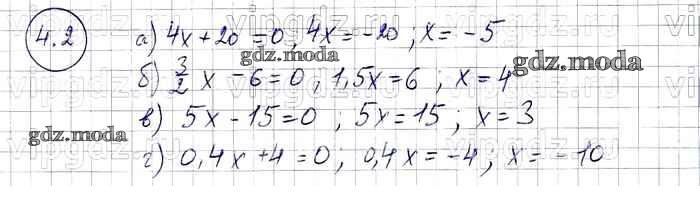 4.2 а) 4x + 20 = 0; 4x = -20; x = -5
gdz.moda
б) 3/2 x - 6 = 0; 1,5x = 6; x = 4
gdz.moda
в) 5x - 15 = 0; 5x = 15; x = 3
gdz.moda
г) 0,4x + 4 = 0; 0,4x = -4; x = -10